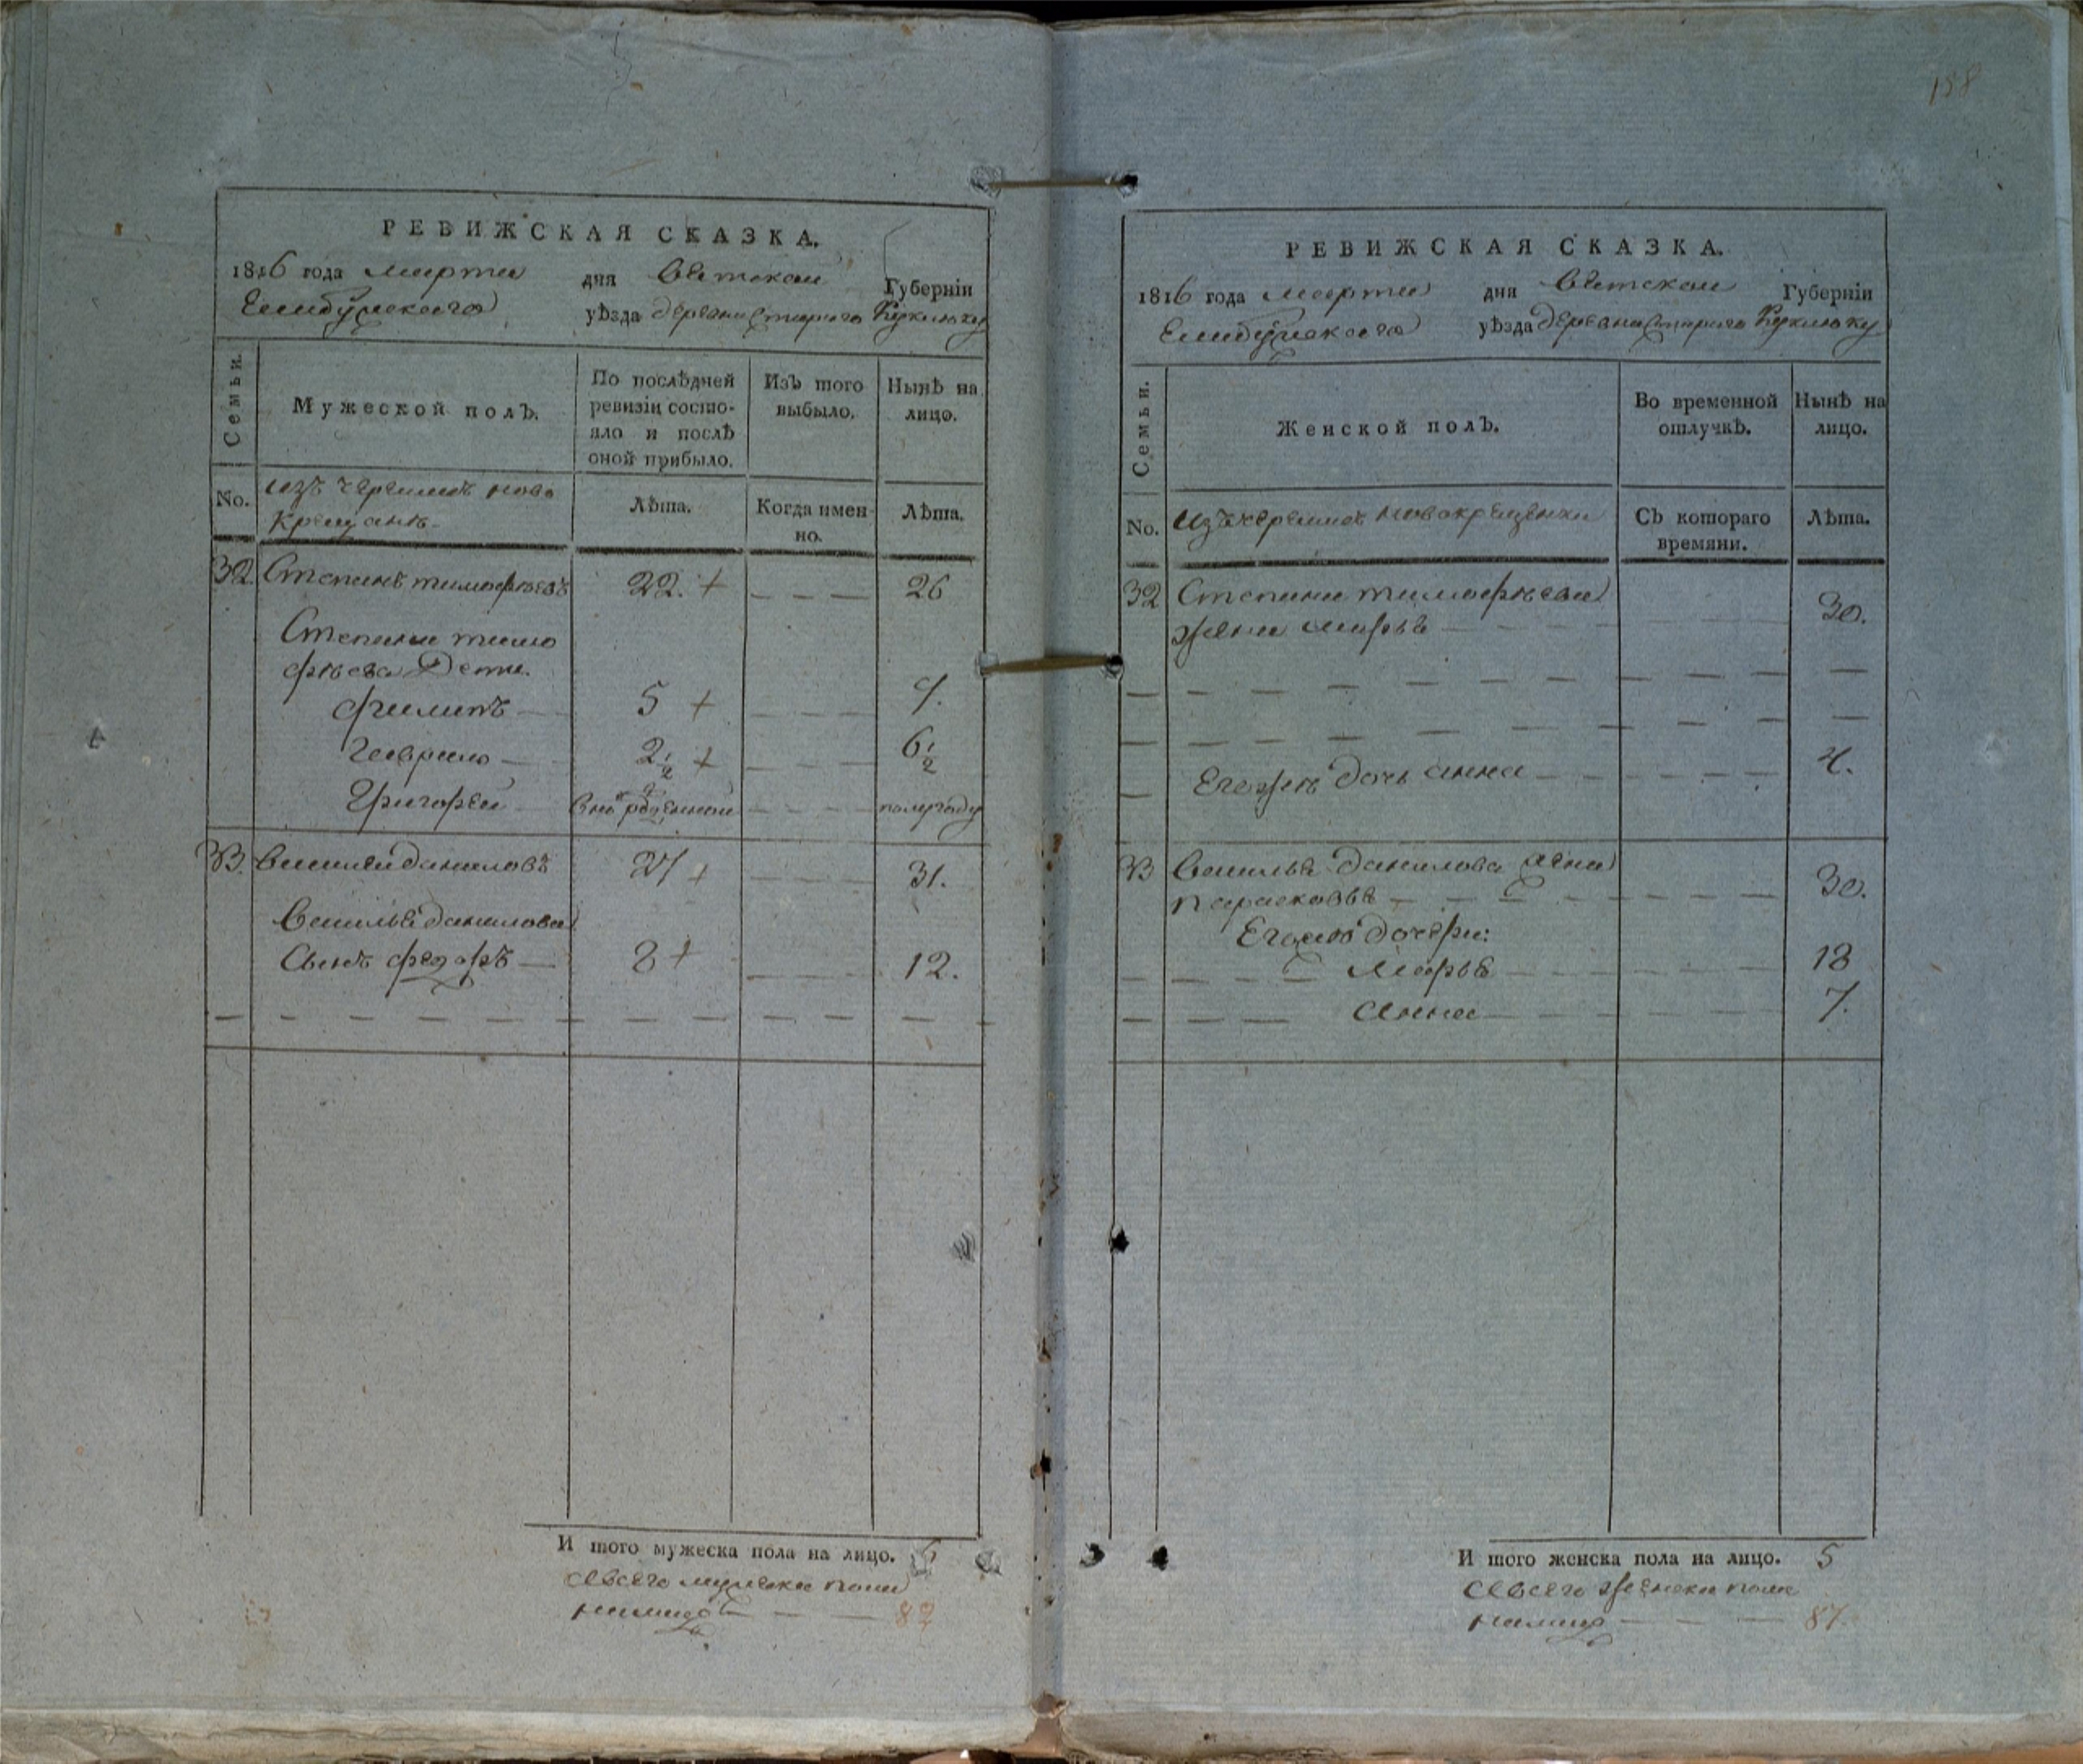 188
РЕВИЖСКАЯ СКАЗКА.
1816 года марта дня Вятской Губерніи
Елабужского уѣзда деревни Старого Куклюку
Семьи. Мужеской полъ. По послѣдней ревизіи состояло и послѣ оной прибыло. Изъ того выбыло. Нынѣ на лицо.
No. изъ черемис ново Лѣта. Когда имен- Лѣта.
крещенъ но.
32. Степанъ тимофѣевъ 22. + 26
Степана тимо
фѣева Дети.
филипъ 5 + 9.
Гаврило 2 1/2 + 6 1/2
Григорей вновь рожденной полугоду
33. василей даниловъ 27 + 31.
василья данилова
Сынъ федоръ 8 + 12.
И того мужеска пола на лицо. 6
авсего мужеска пола
налицо 82
РЕВИЖСКАЯ СКАЗКА.
1816 года марта дня Вятской Губерніи
Елабужского уѣзда деревни Старого Куклюку
Семьи. Женской полъ. Во временной отлучкѣ. Нынѣ на лицо.
No. изъ черемис новокрещенки Съ котораго Лѣта.
времяни.
32 Степана тимофѣева
жена марья 30.
Егожъ дочь анна 4.
33 василья данилова жена
парасковья 30.
Егожъ дочери:
марья 18
анна 7.
И того женска пола на лицо. 5
авсего женска пола
налицо 87.